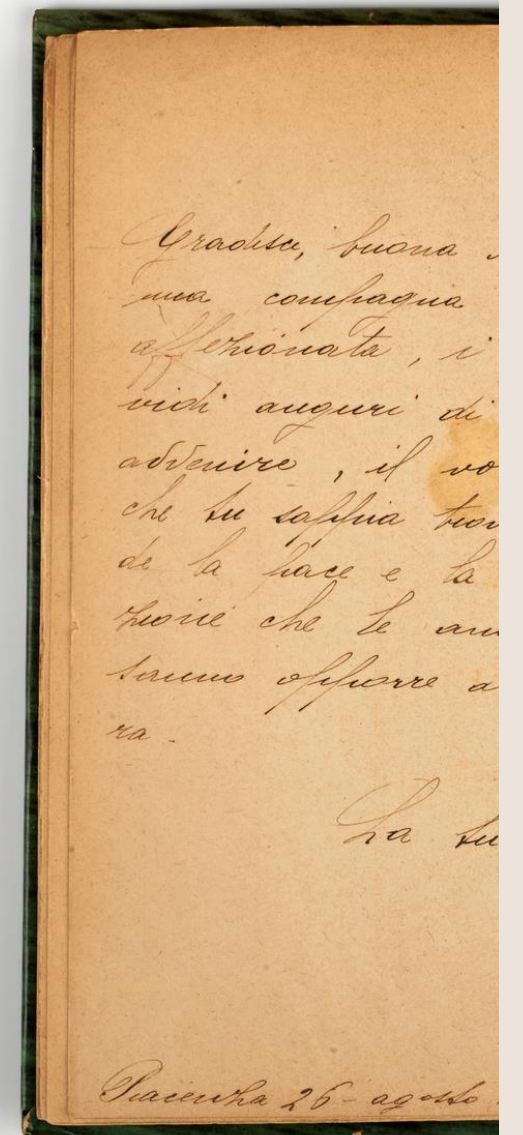 Gradisci, buona
mia compagna
affezionata, i
vidi auguri di
avvenire, il vo
che tu sappia trov
de la pace e la
zione che le an
sanno opporre a
ra.
La tu
Piacenza 26 - agosto